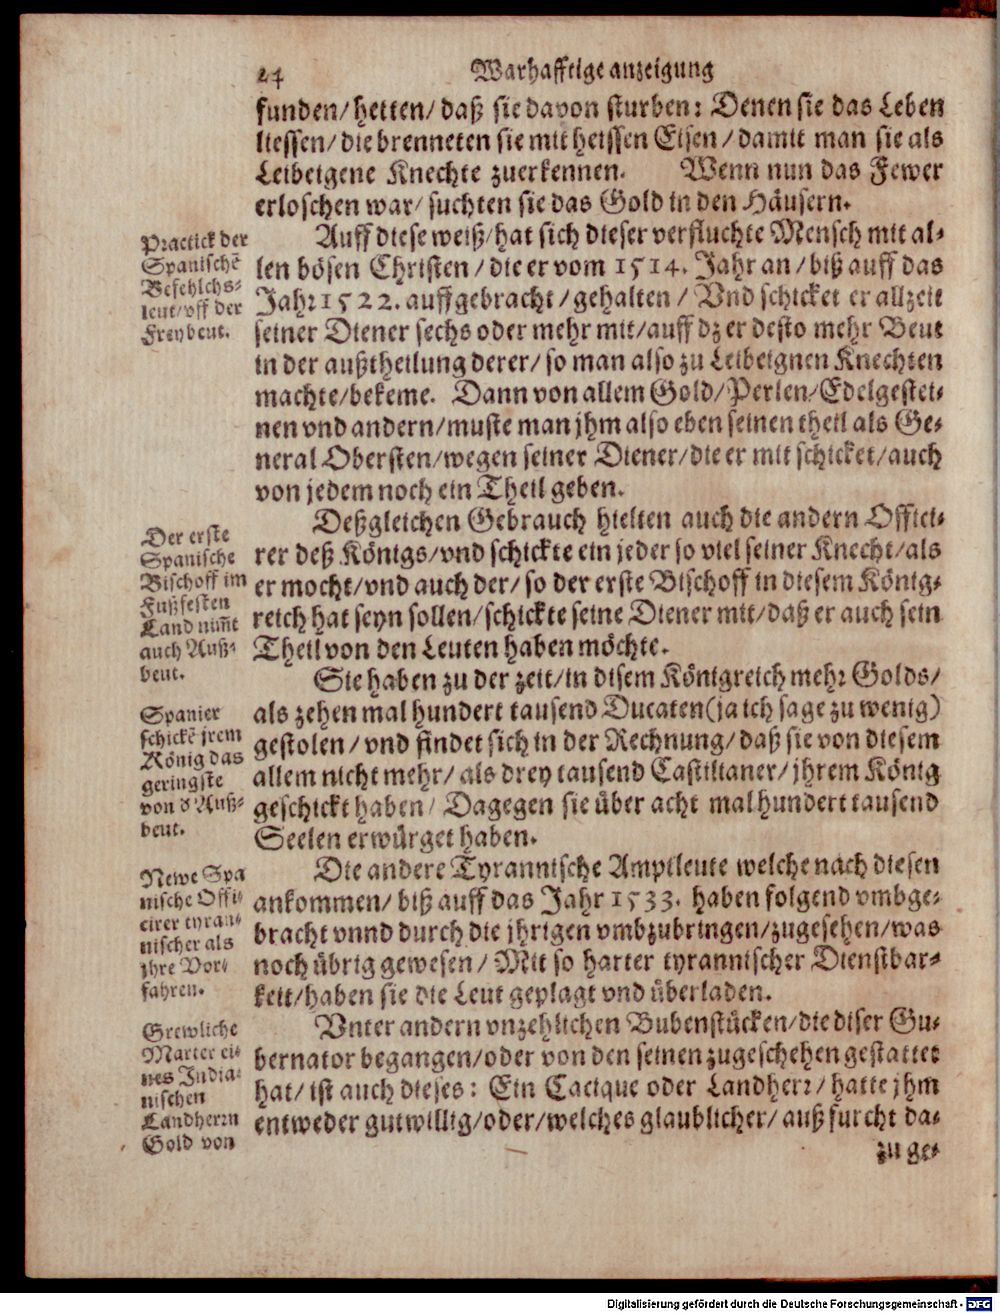 24 Warhafftige anzeigung
funden/hetten/daß sie davon sturben: Denen sie das Leben
liessen/die brenneten sie mit heissen Eisen/damit man sie als
Leibeigene Knechte zuerkennen. Wenn nun das Fewer
erloschen war/suchten sie das Gold in den Häusern.
Practick der
Spanischẽ
Befehlchs-
leut/vff der
Freybeut.
Auff diese weiß/hat sich dieser verfluchte Mensch mit al-
len bösen Christen/die er vom 1514. Jahr an/biß auff das
Jahr 1522. auffgebracht/gehalten/Vnd schicket er allzeit
seiner Diener sechs oder mehr mit/auff dz er desto mehr Beut
in der außtheilung derer/so man also zu Leibeignen Knechten
machte/bekeme. Dann von allem Gold/Perlen/Edelgestei-
nen vnd andern/muste man jhm also eben seinen theil als Ge-
neral Obersten/wegen seiner Diener/die er mit schicket/auch
von jedem noch ein Theil geben.
Der erste
Spanische
Bischoff im
Fußfesten
Land nim̃t
auch Auß-
beut.
Deßgleichen Gebrauch hielten auch die andern Offici-
rer deß Königs/vnd schickte ein jeder so viel seiner Knecht/als
er mocht/vnd auch der/so der erste Bischoff in diesem König-
reich hat seyn sollen/schickte seine Diener mit/daß er auch sein
Theil von den Leuten haben möchte.
Spanier
schickẽ jrem
König das
geringste
von d Auß-
beut.
Sie haben zu der zeit/in disem Königreich mehr Golds/
als zehen mal hundert tausend Ducaten(ja ich sage zu wenig)
gestolen/vnd findet sich in der Rechnung/daß sie von diesem
allem nicht mehr/als drey tausend Castilianer/jhrem König
geschickt haben/Dagegen sie über acht mal hundert tausend
Seelen erwürget haben.
Newe Spa
nische Offi-
cirer tyran-
nischer als
jhre Vor-
fahren.
Die andere Tyrannische Amptleute welche nach diesen
ankommen/biß auff das Jahr 1533. haben folgend vmbge-
bracht vnnd durch die jhrigen vmbzubringen/zugesehen/was
noch übrig gewesen/Mit so harter tyrannischer Dienstbar-
keit/haben sie die Leut geplagt vnd überladen.
Grewliche
Marter ei-
nes India-
nischen
Landherrn
Gold von
Vnter andern vnzehlichen Bubenstücken/die diser Gu-
bernator begangen/oder von den seinen zugeschehen gestattet
hat/ist auch dieses: Ein Cacique oder Landherr/hatte jhm
entweder gutwillig/oder/welches glaublicher/auß furcht da-
zu ge-
Digitalisierung gefördert durch die Deutsche Forschungsgemeinschaft - DFG